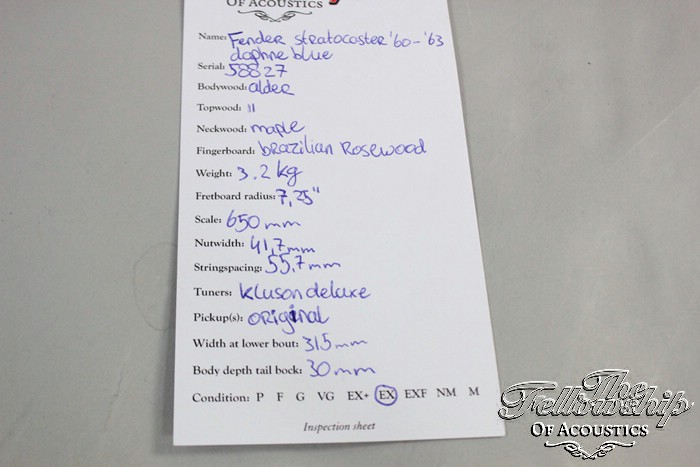 OF ACOUSTICS
Name: Fender stratocaster '60-'63
daphne blue
Serial: 58827
Bodywood: alder
Topwood: "
Neckwood: maple
Fingerboard: brazilian Rosewood
Weight: 3.2 kg
Fretboard radius: 7,25"
Scale: 650 mm
Nutwidth: 41,7 mm
Stringspacing: 55,7 mm
Tuners: Kluson deluxe
Pickup(s): original
Width at lower bout: 315 mm
Body depth tail bock: 30 mm
Condition: P F G VG EX+ EX EXF NM M
Inspection sheet
The
Fellowship
OF ACOUSTICS